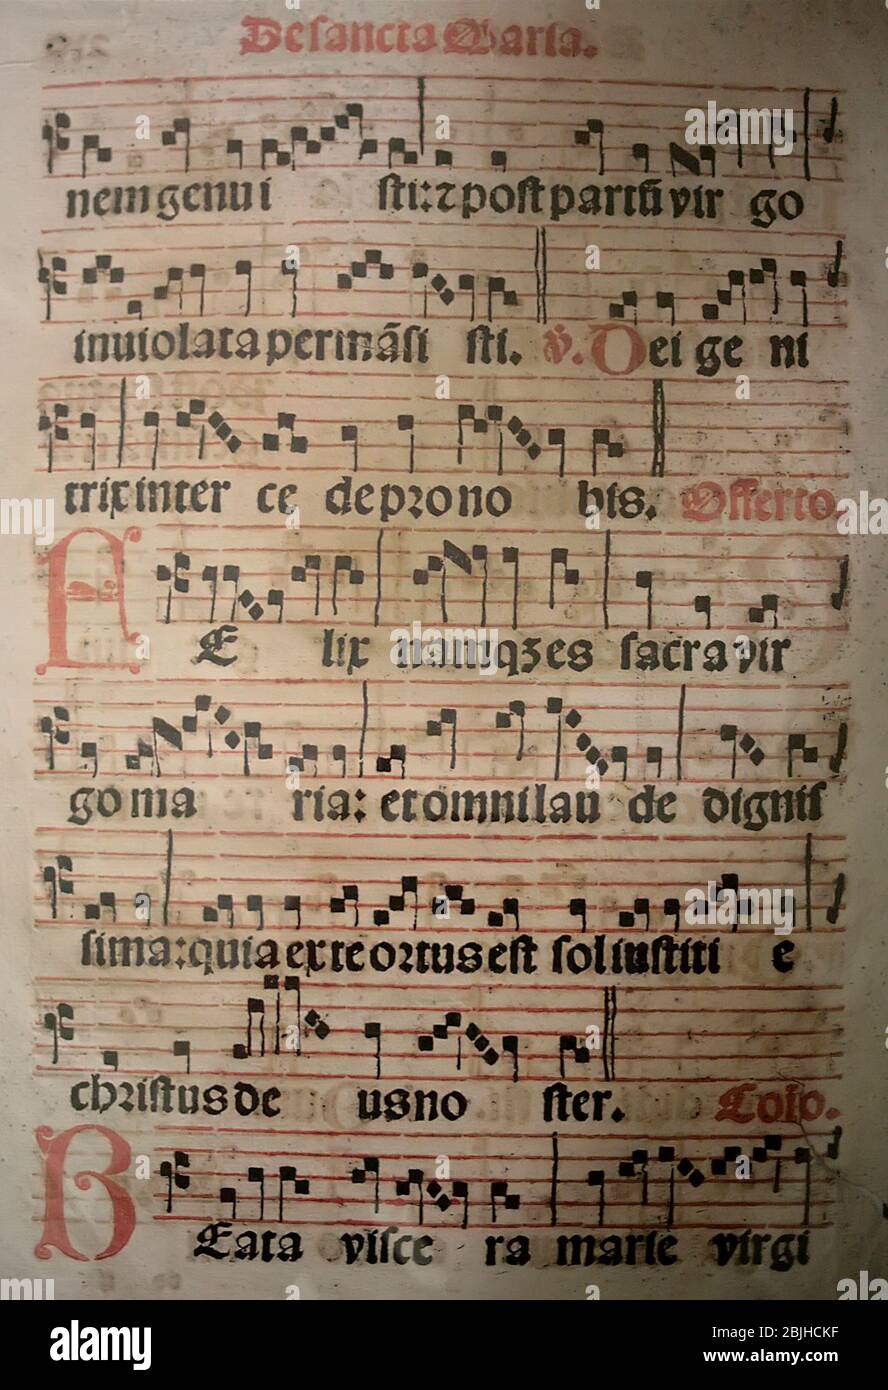 De sancta Maria.
nem genui sti: ⁊ post partũ vir go
inuiolata permãsi sti. ℣. Dei ge ni
trix inter ce de pro no bis. Offerto.
FE lix namqꝫ es sacra vir
go ma ria: et omni lau de dignis
sima: quia ex te ortus est sol iustiti e
christus de us no ster. Cõio.
BEata visce ra marie virgi
a
alamy
Image ID: 2BJHCKF
www.alamy.com